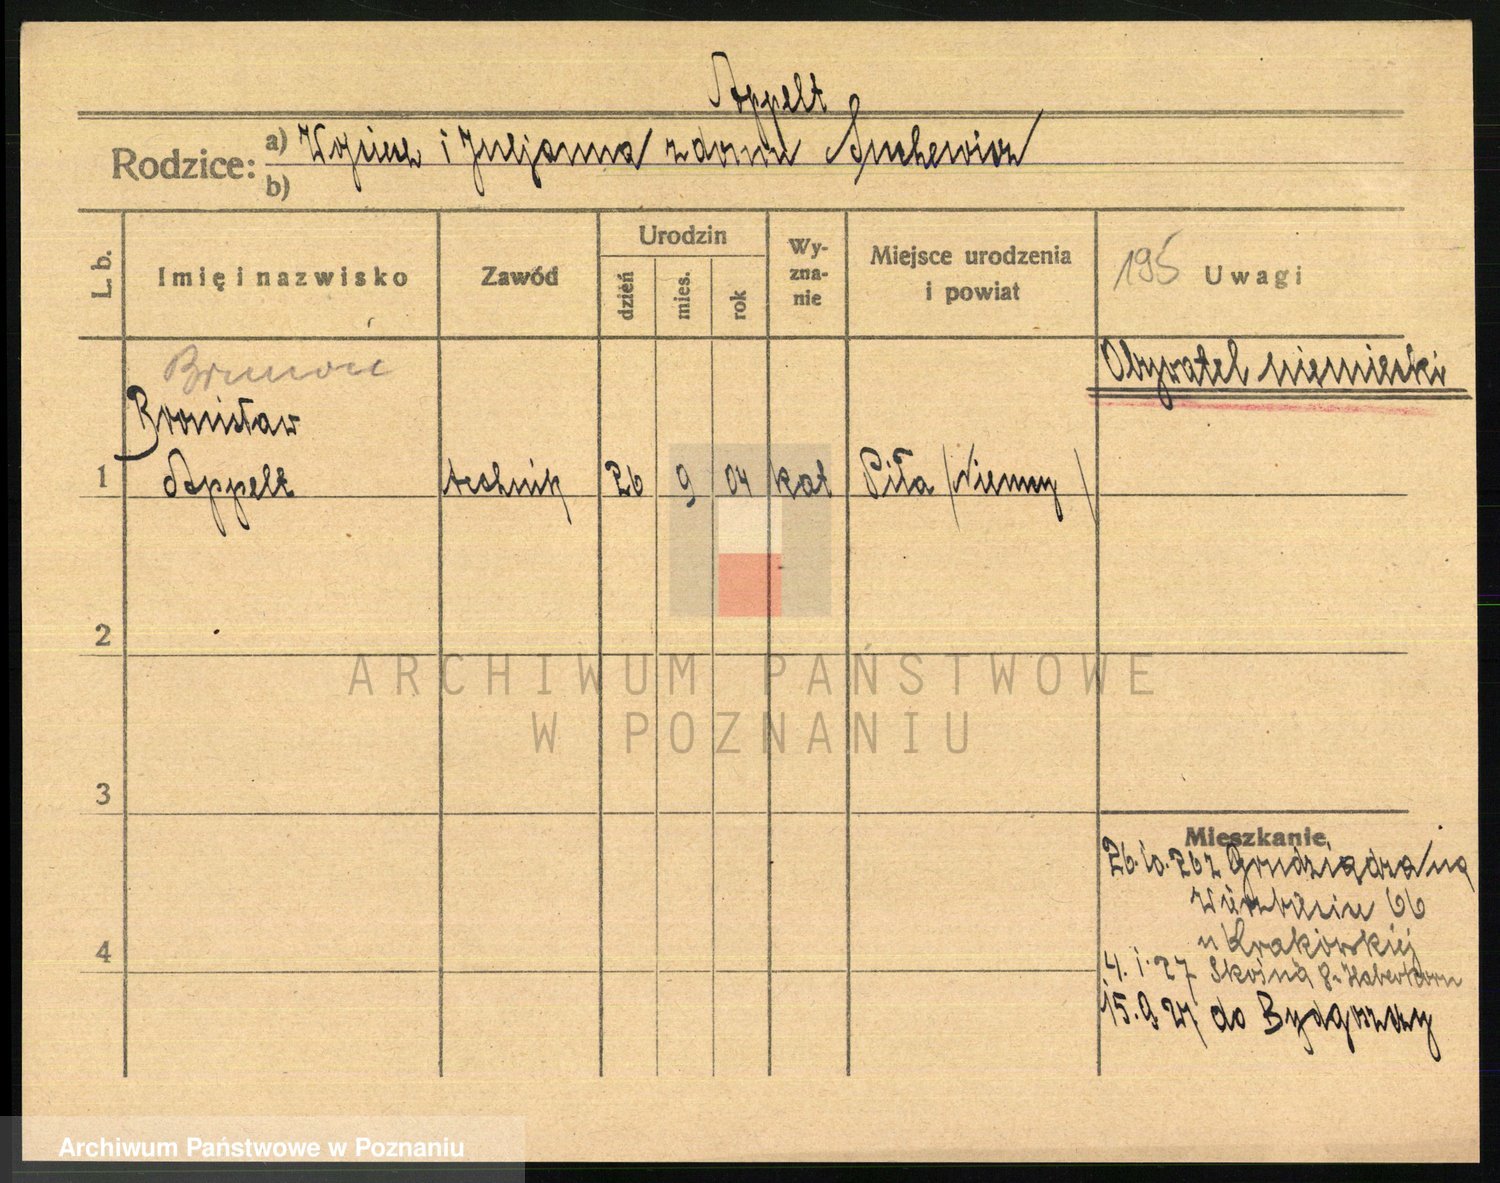 Appelt
Rodzice: a) Wojciech i Juljanna z domu Suchewicz
b)
L. b.
Imię i nazwisko
Zawód
Urodzin
dzień
mies.
rok
Wy-
zna-
nie
Miejsce urodzenia
i powiat
195 Uwagi
Obywatel niemiecki
Bronisław
1 Appelt technik 26 9 04 kat Piła (Niemcy)
2
3
4
Mieszkanie
26.10.26 z Grudziądza na
Wierzbięcice 66
u Krakowskiej
4.1.27 Skośna 8 Haberkorn
15.9.27 do Bydgoszczy
ARCHIWUM PAŃSTWOWE
W POZNANIU
Archiwum Państwowe w Poznaniu